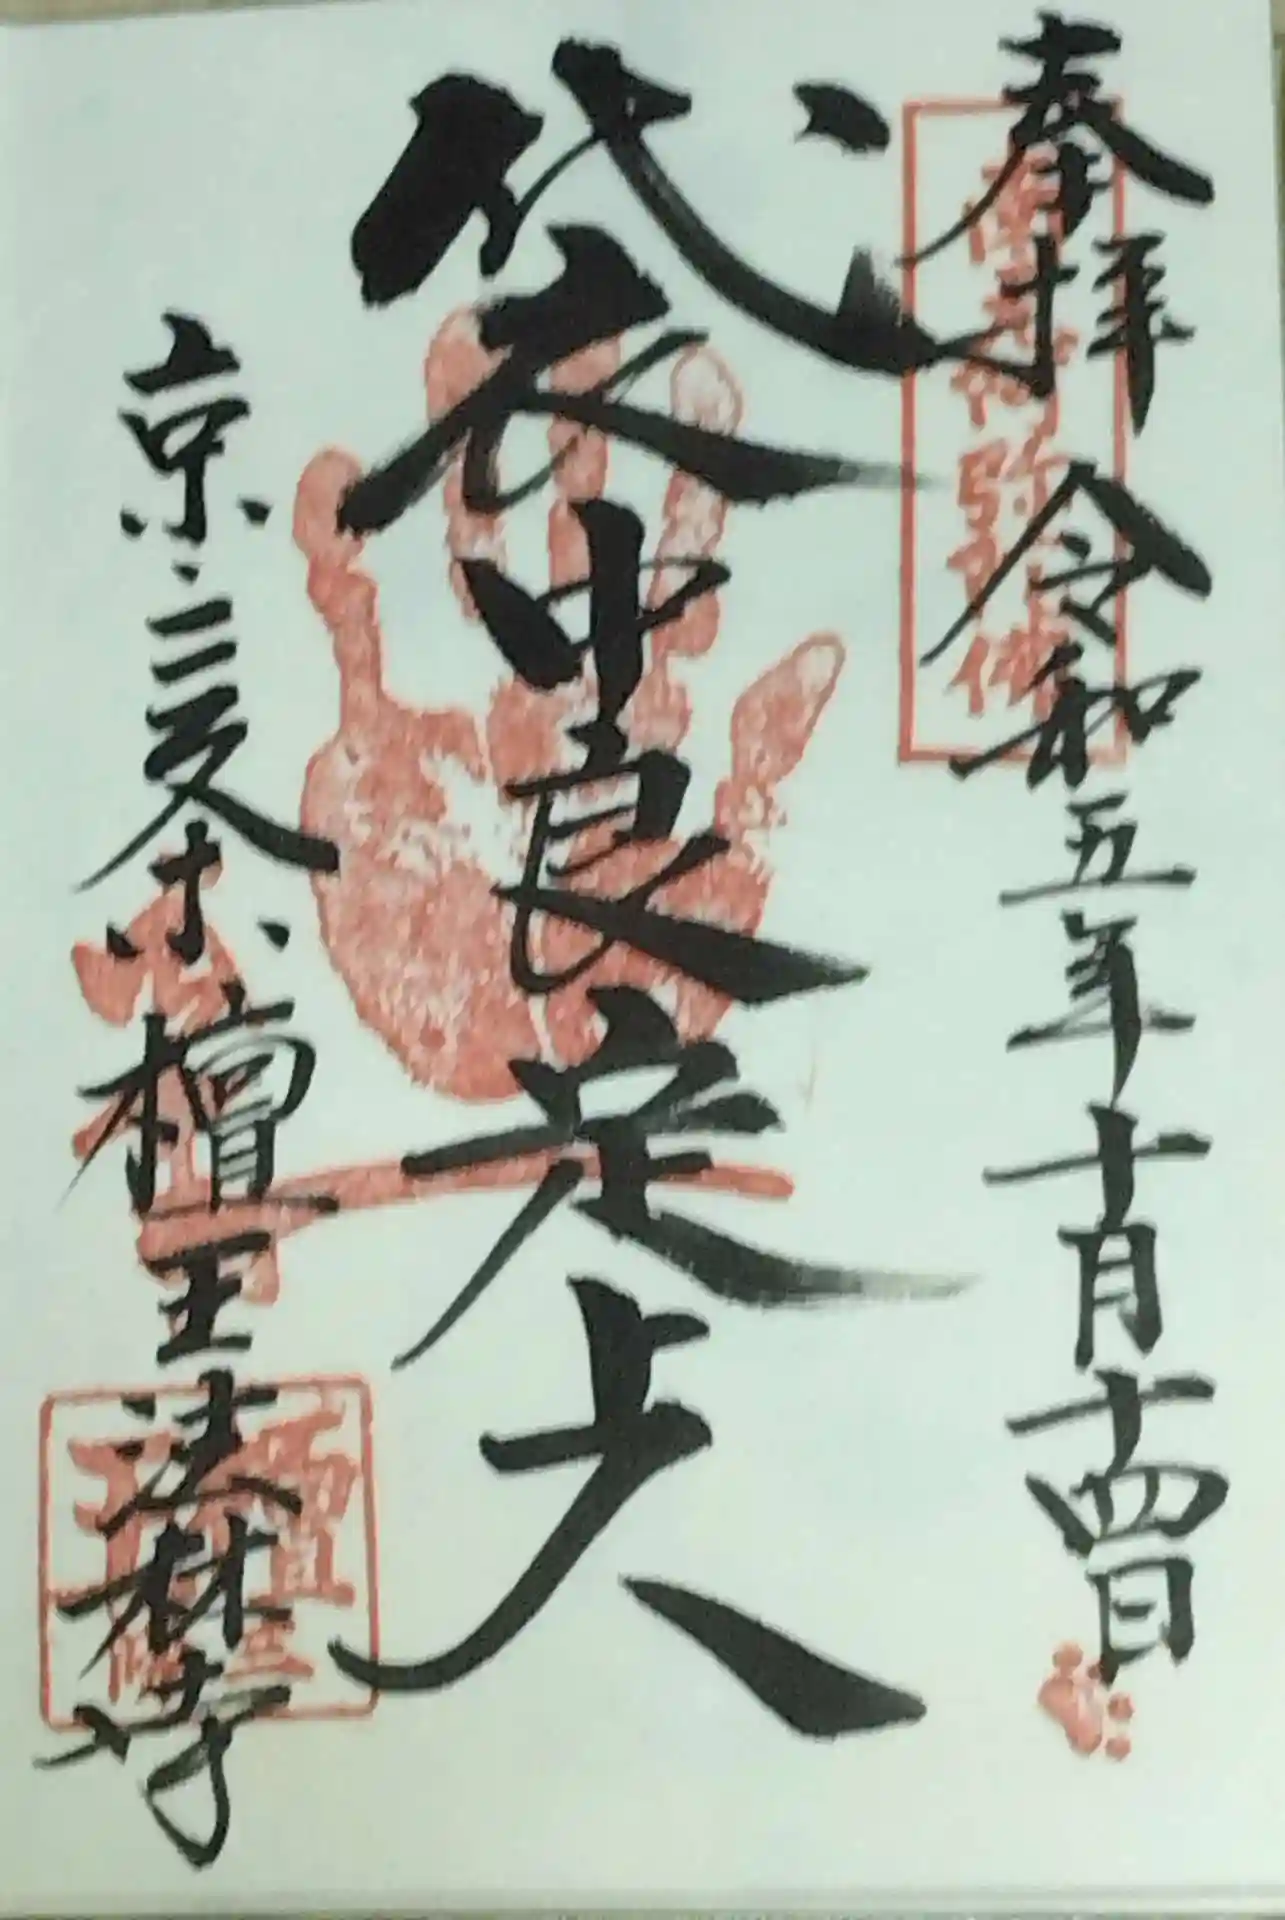 奉拝 令和五年十月十四日
袋中良定上人
京・三条 檀王法林寺